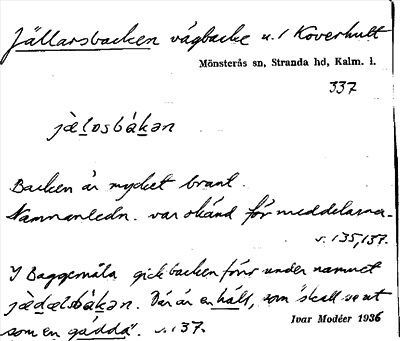 Jällarsbacken vägbacke u. / Koverhult
Mönsterås sn, Stranda hd, Kalm. l.
337
jæ̀losbákən
Backen är mycket brant.
Namnanledn. var okänd för meddelarna.
s. 135, 137.
I Baggemåla gick backen förr under namnet
jæ̀dælsbákən. Där är en häll, som "skall se ut
som en gädda". s. 137.
Ivar Modéer 1936